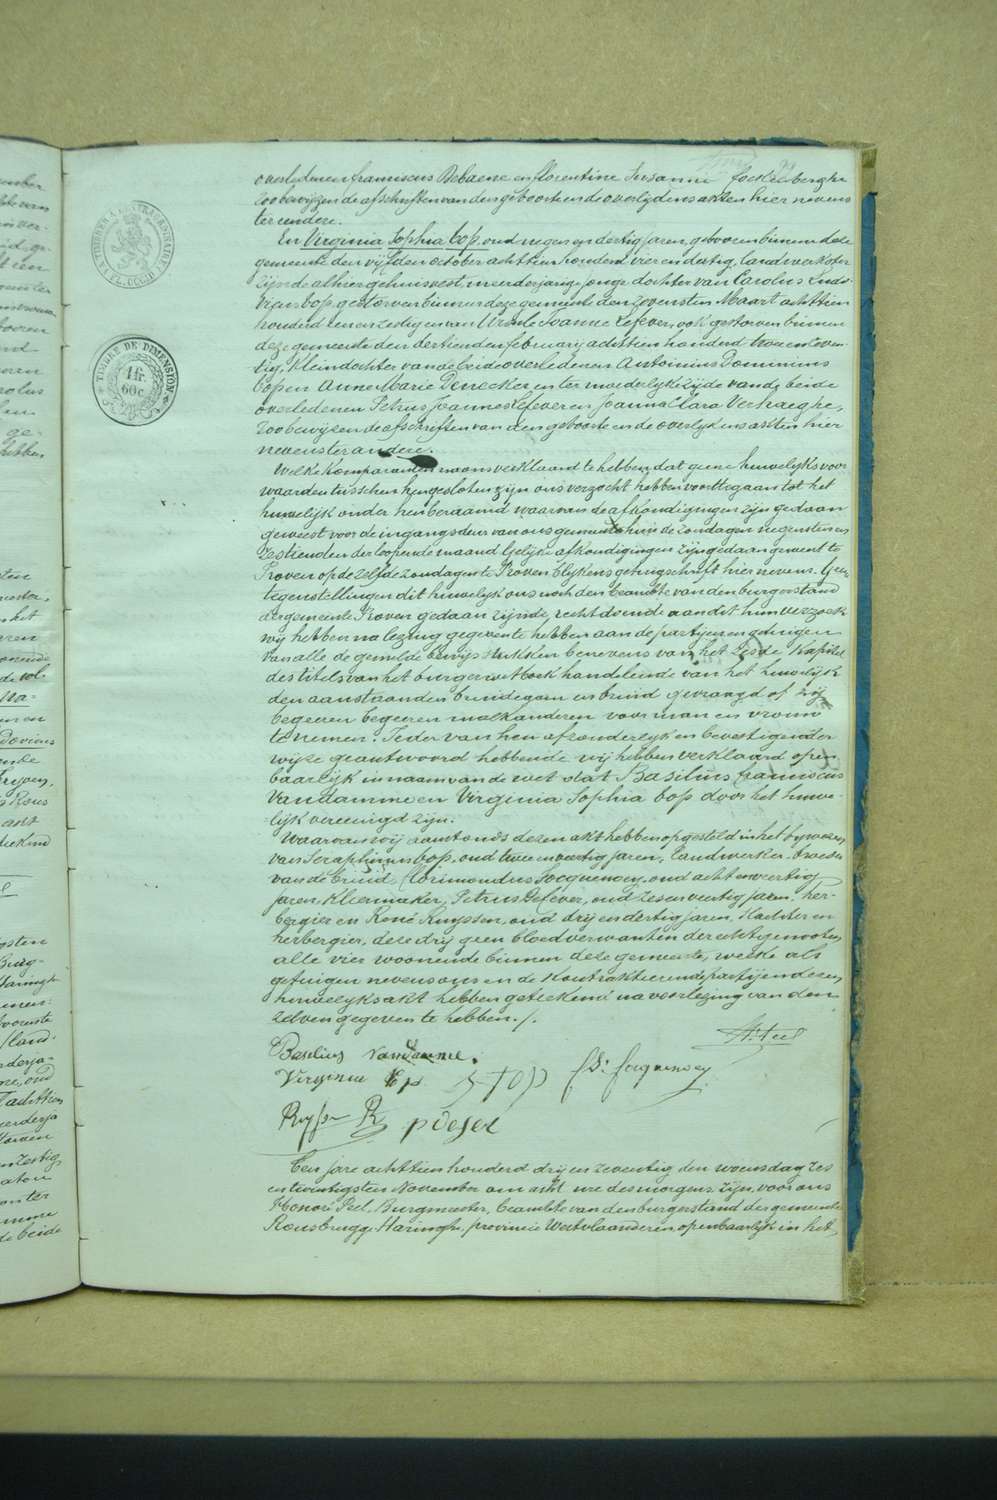 overledenen franciscus Debaene en florentine Susanne
zoo bewijzen de afschriften van den geboorte en de overlydens akten hier nevens
ter eindere.
En Virginia Sophia Cop, oud negen en dertig jaren, geboren binnen deze
gemeente den vijfden october achttien honderd vier en dertig, landwerkster
zijnde alhier gehuisvest, meerderjarige jonge dochter van Carolus Ludo-
vicus Cop, gestorven binnen deze gemeente den zevensten Maart achttien
honderd een en zestig en van Ursule Joanne Lefever, ook gestorven binnen
deze gemeente den dertienden february achttien honderd twee en zeven-
tig, kleindochter van de beide overledenen Antonius Dominicus
Cop en Anne Marie Denecker en ter moederlyke zijde van de beide
overledenen Petrus Joannes Lefever en Joanna Clara Verhaeghe,
zoo bewijzen de afschriften van den geboorte en de overlydens akten hier
nevens ter andere.
Welke komparanten na ons verklaard te hebben dat gene huwelyksvoor-
waarden tusschen hen gesloten zijn ons verzocht hebben voorttegaan tot het
huwelijk onder hen beraamd waarvan de afkondigingen zijn gedaan
geweest voor de ingangsdeur van ons gemeentehuis de zondagen negensten en
zestienden der loopende maand Gelijke afkondigingen zijn gedaan geweest te
Proven op de zelfde zondagen te Proven blykens getuigschrift hier nevens. Geen
tegenstellingen dit huwelijk ons noch den beambte van den burgerstand
der gemeente Proven gedaan zijnde, recht doende aan dit hun verzoek
wij hebben na lezing gegeven te hebben aan de partijen en getuigen
van alle de gemelde bewijsstukken benevens van het zesde kapitel
des titels van het burgerwetboek handelende van het huwelijk
den aanstaanden bruidegom en bruid gevraagd of zij
begeeren begeeren malkanderen voor man en vrouw
te nemen. Ieder van hen afzonderlyk en bevestigender
wijze geantwoord hebbende wij hebben verklaard open-
baarlijk in naam van de wet dat Basilius Franciscus
Vandamme en Virginia Sophia Cop door het huwe-
lijk vereenigd zijn.
Waarvan wij aanstonds dezen akt hebben opgesteld in het bywezen
van Seraphinus Cop, oud twee en veertig jaren, landwerker, broeder
van de bruid, Clorimondus Socquenoey, oud acht en veertig
jaren, Kleermaker, Petrus Defever, oud zes en veertig jaren, her-
bergier en René Ruyssen, oud drij en dertig jaren, Klachter en
herbergier, deze drij geen bloedverwanten der echtgenooten,
alle vier woonende binnen deze gemeente, welke als
getuigen nevens ons en de kontrakteerende partijen dezen
huwelyksakt hebben geteekend na voorlezing van den
zelven gegeven te hebben./.
Basilius Vandamme.
Virginie Cop S + Op
p defer
Een jare achttien honderd drij en zeventig den woensdag zes
en twintigsten November om acht ure des morgens zijn voor ons
Honoré Peel, Burgmeester, beambte van den burgerstand der gemeente
Rousbrugge Haringhe, provincie Westvlaanderen openbaarlijk in het
TIMBRE DE DIMENSION
1 fr.
60 c.